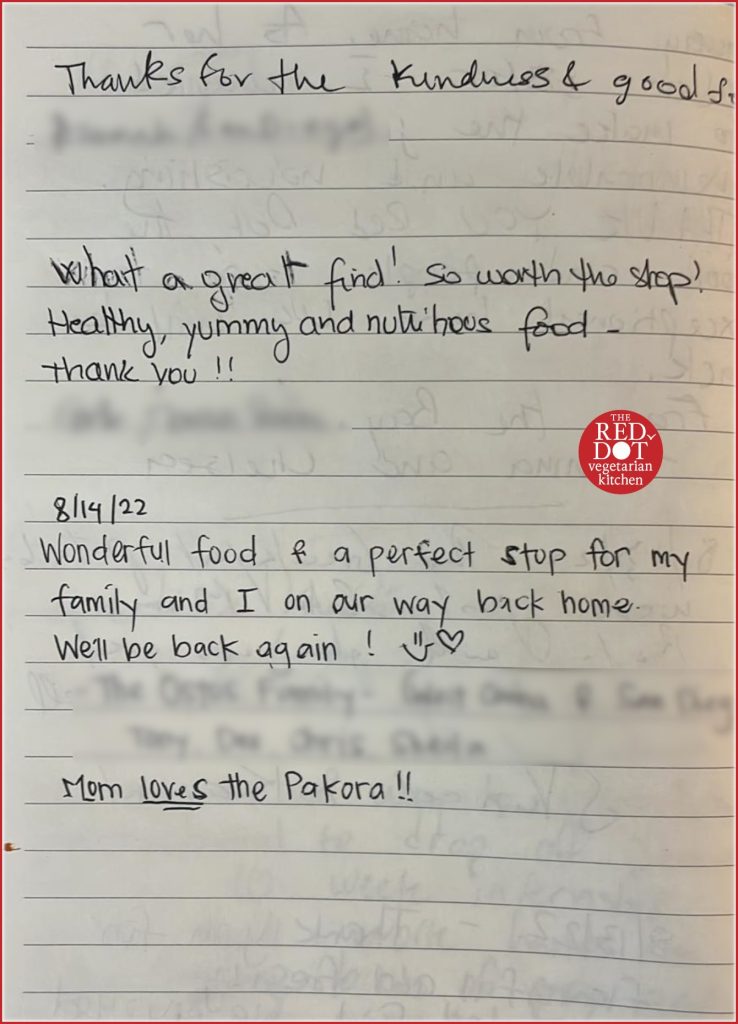 Thanks for the kindness & good f
What a great find! So worth the stop!
Healthy, yummy and nutritious food -
thank you !!
THE
RED
DOT
vegetarian
kitchen
8/14/22
Wonderful food & a perfect stop for my
family and I on our way back home.
We'll be back again !
Mom loves the Pakora !!